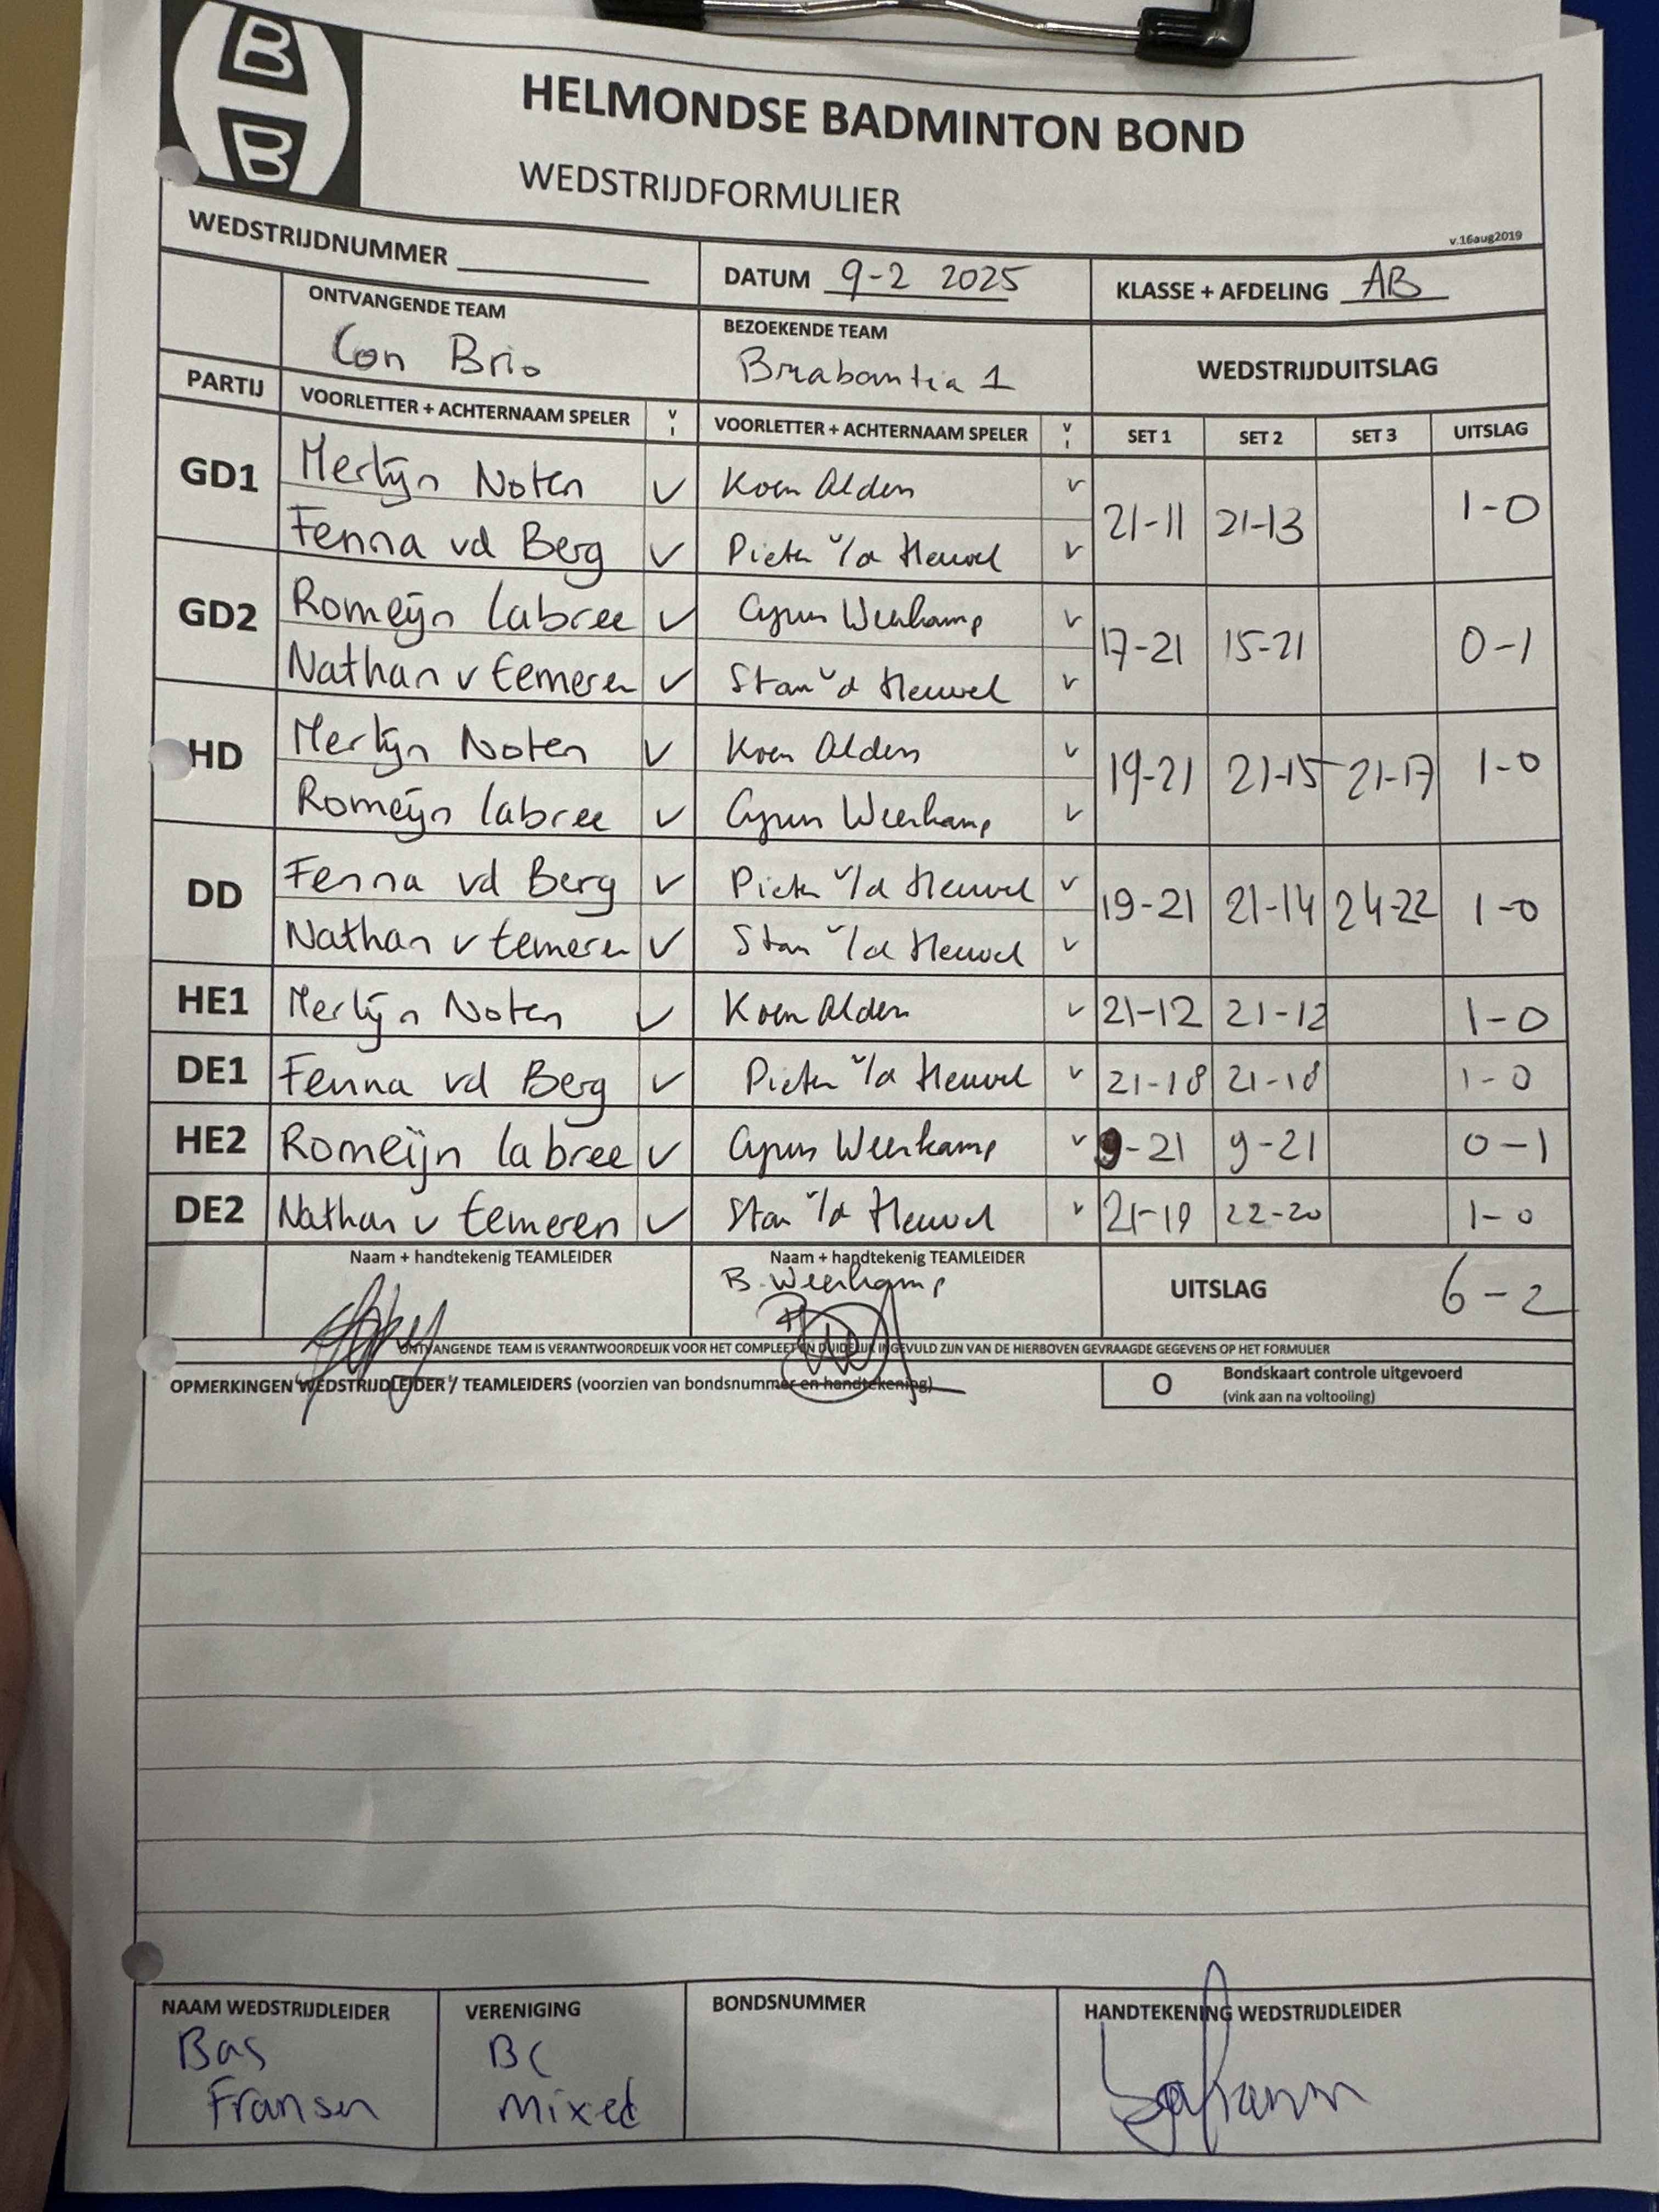 B
B
HELMONDSE BADMINTON BOND
WEDSTRIJDFORMULIER
v.16aug2019
WEDSTRIJDNUMMER
DATUM 9-2 2025
KLASSE + AFDELING AB
ONTVANGENDE TEAM
Con Brio
BEZOEKENDE TEAM
Brabantia 1
WEDSTRIJDUITSLAG
PARTIJ VOORLETTER + ACHTERNAAM SPELER V I VOORLETTER + ACHTERNAAM SPELER V I SET 1 SET 2 SET 3 UITSLAG
GD1 Merlijn Noten V Koen Alden v 21-11 21-13 1-0
Fenna vd Berg V Pieter v/d Heuvel v
GD2 Romeijn Labree V Cyrus Weerkamp v 17-21 15-21 0-1
Nathan v Eemeren V Stan v/d Heuvel v
HD Merlijn Noten V Koen Alden v 19-21 21-15 21-17 1-0
Romeijn Labree V Cyrus Weerkamp v
DD Fenna vd Berg V Pieter v/d Heuvel v 19-21 21-14 24-22 1-0
Nathan v Eemeren V Stan v/d Heuvel v
HE1 Merlijn Noten V Koen Alden v 21-12 21-12 1-0
DE1 Fenna vd Berg V Pieter v/d Heuvel v 21-18 21-18 1-0
HE2 Romeijn Labree V Cyrus Weerkamp v 9-21 9-21 0-1
DE2 Nathan v Eemeren V Stan v/d Heuvel v 21-19 22-20 1-0
Naam + handtekenig TEAMLEIDER
Naam + handtekenig TEAMLEIDER
B. Weerkamp
UITSLAG 6-2
ONTVANGENDE TEAM IS VERANTWOORDELIJK VOOR HET COMPLEET EN DUIDELIJK INGEVULD ZIJN VAN DE HIERBOVEN GEVRAAGDE GEGEVENS OP HET FORMULIER
OPMERKINGEN WEDSTRIJDLEIDER / TEAMLEIDERS (voorzien van bondsnummer en handtekening)
O Bondskaart controle uitgevoerd
(vink aan na voltooling)
NAAM WEDSTRIJDLEIDER
Bas
Fransen
VERENIGING
BC
Mixed
BONDSNUMMER
HANDTEKENING WEDSTRIJDLEIDER